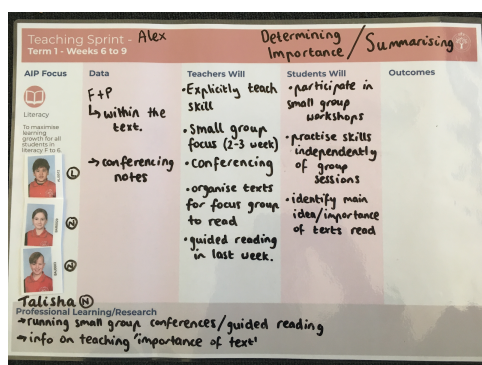 Teaching Sprint - Alex
Term 1 - Weeks 6 to 9
Determining
Importance / Summarising
AIP Focus
Literacy
To maximise
learning
growth for all
students in
literacy F to 6.
L
N
N
Talisha N
Data
F+P
↳ within the
text.
→ conferencing
notes
Teachers Will
• Explicitly teach
skill
• small group
focus (2-3 week)
• conferencing
• organise texts
for focus group
to read
• guided reading
in last week.
Students Will
• participate in
small group
workshops
• practise skills
independently
of group
sessions
• identify main
idea/importance
of texts read
Outcomes
Professional Learning/Research
→ running small group conferences/guided reading
→ info on teaching 'importance of text'